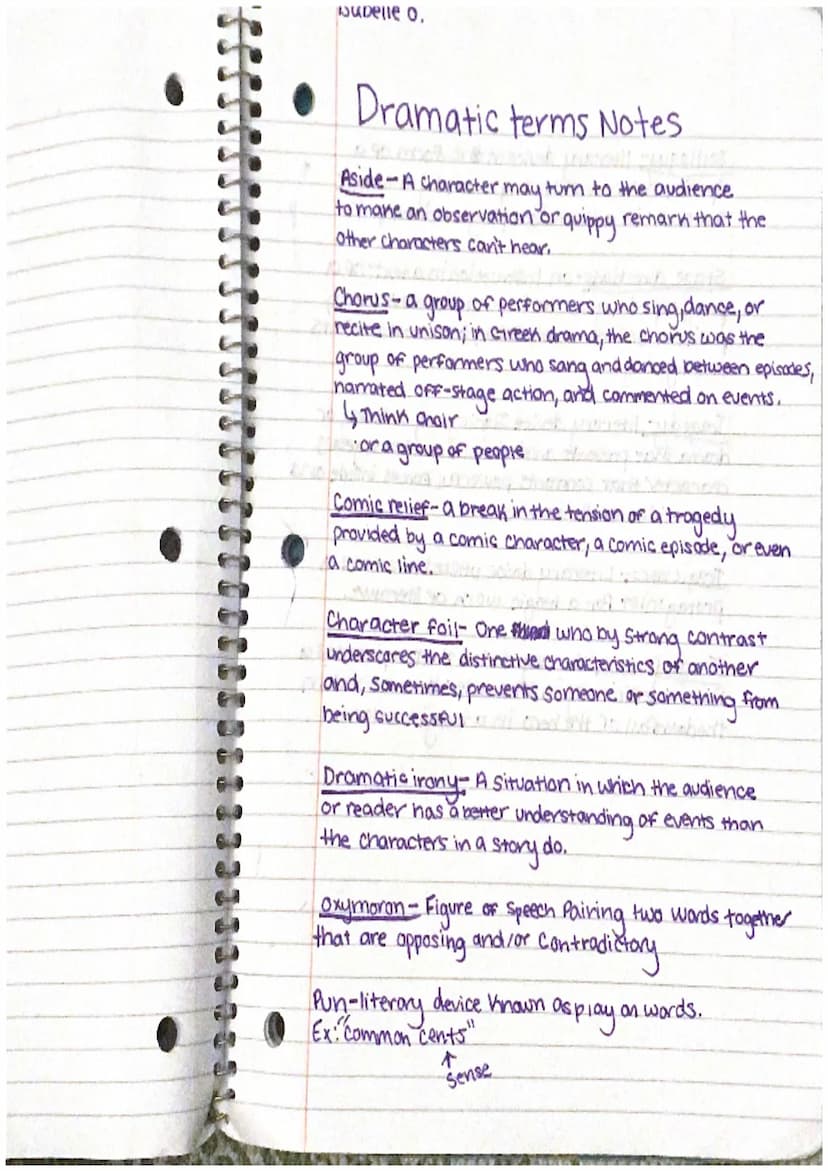 Isubelle O.
Dramatic terms Notes
Aside - A character may turn to the audience
to make an observation or quippy remark that the
other characters can't hear.
Chorus - a group of performers who sing, dance, or
recite in unison; in Greek drama, the chorus was the
group of performers who sang and danced between episodes,
narrated off-stage action, and commented on events.
↳ Think choir
or a group of people
Comic relief - a break in the tension of a tragedy
provided by a comic character, a comic episode, or even
a comic line.
Character foil - One who by strong contrast
underscores the distinctive characteristics of another
and, sometimes, prevents someone or something from
being successful
Dramatic irony - A situation in which the audience
or reader has a better understanding of events than
the characters in a story do.
Oxymoron - Figure of Speech Pairing two words together
that are opposing and/or Contradictory
Pun - literary device known as play on words.
Ex: "common cents"
↑
sense